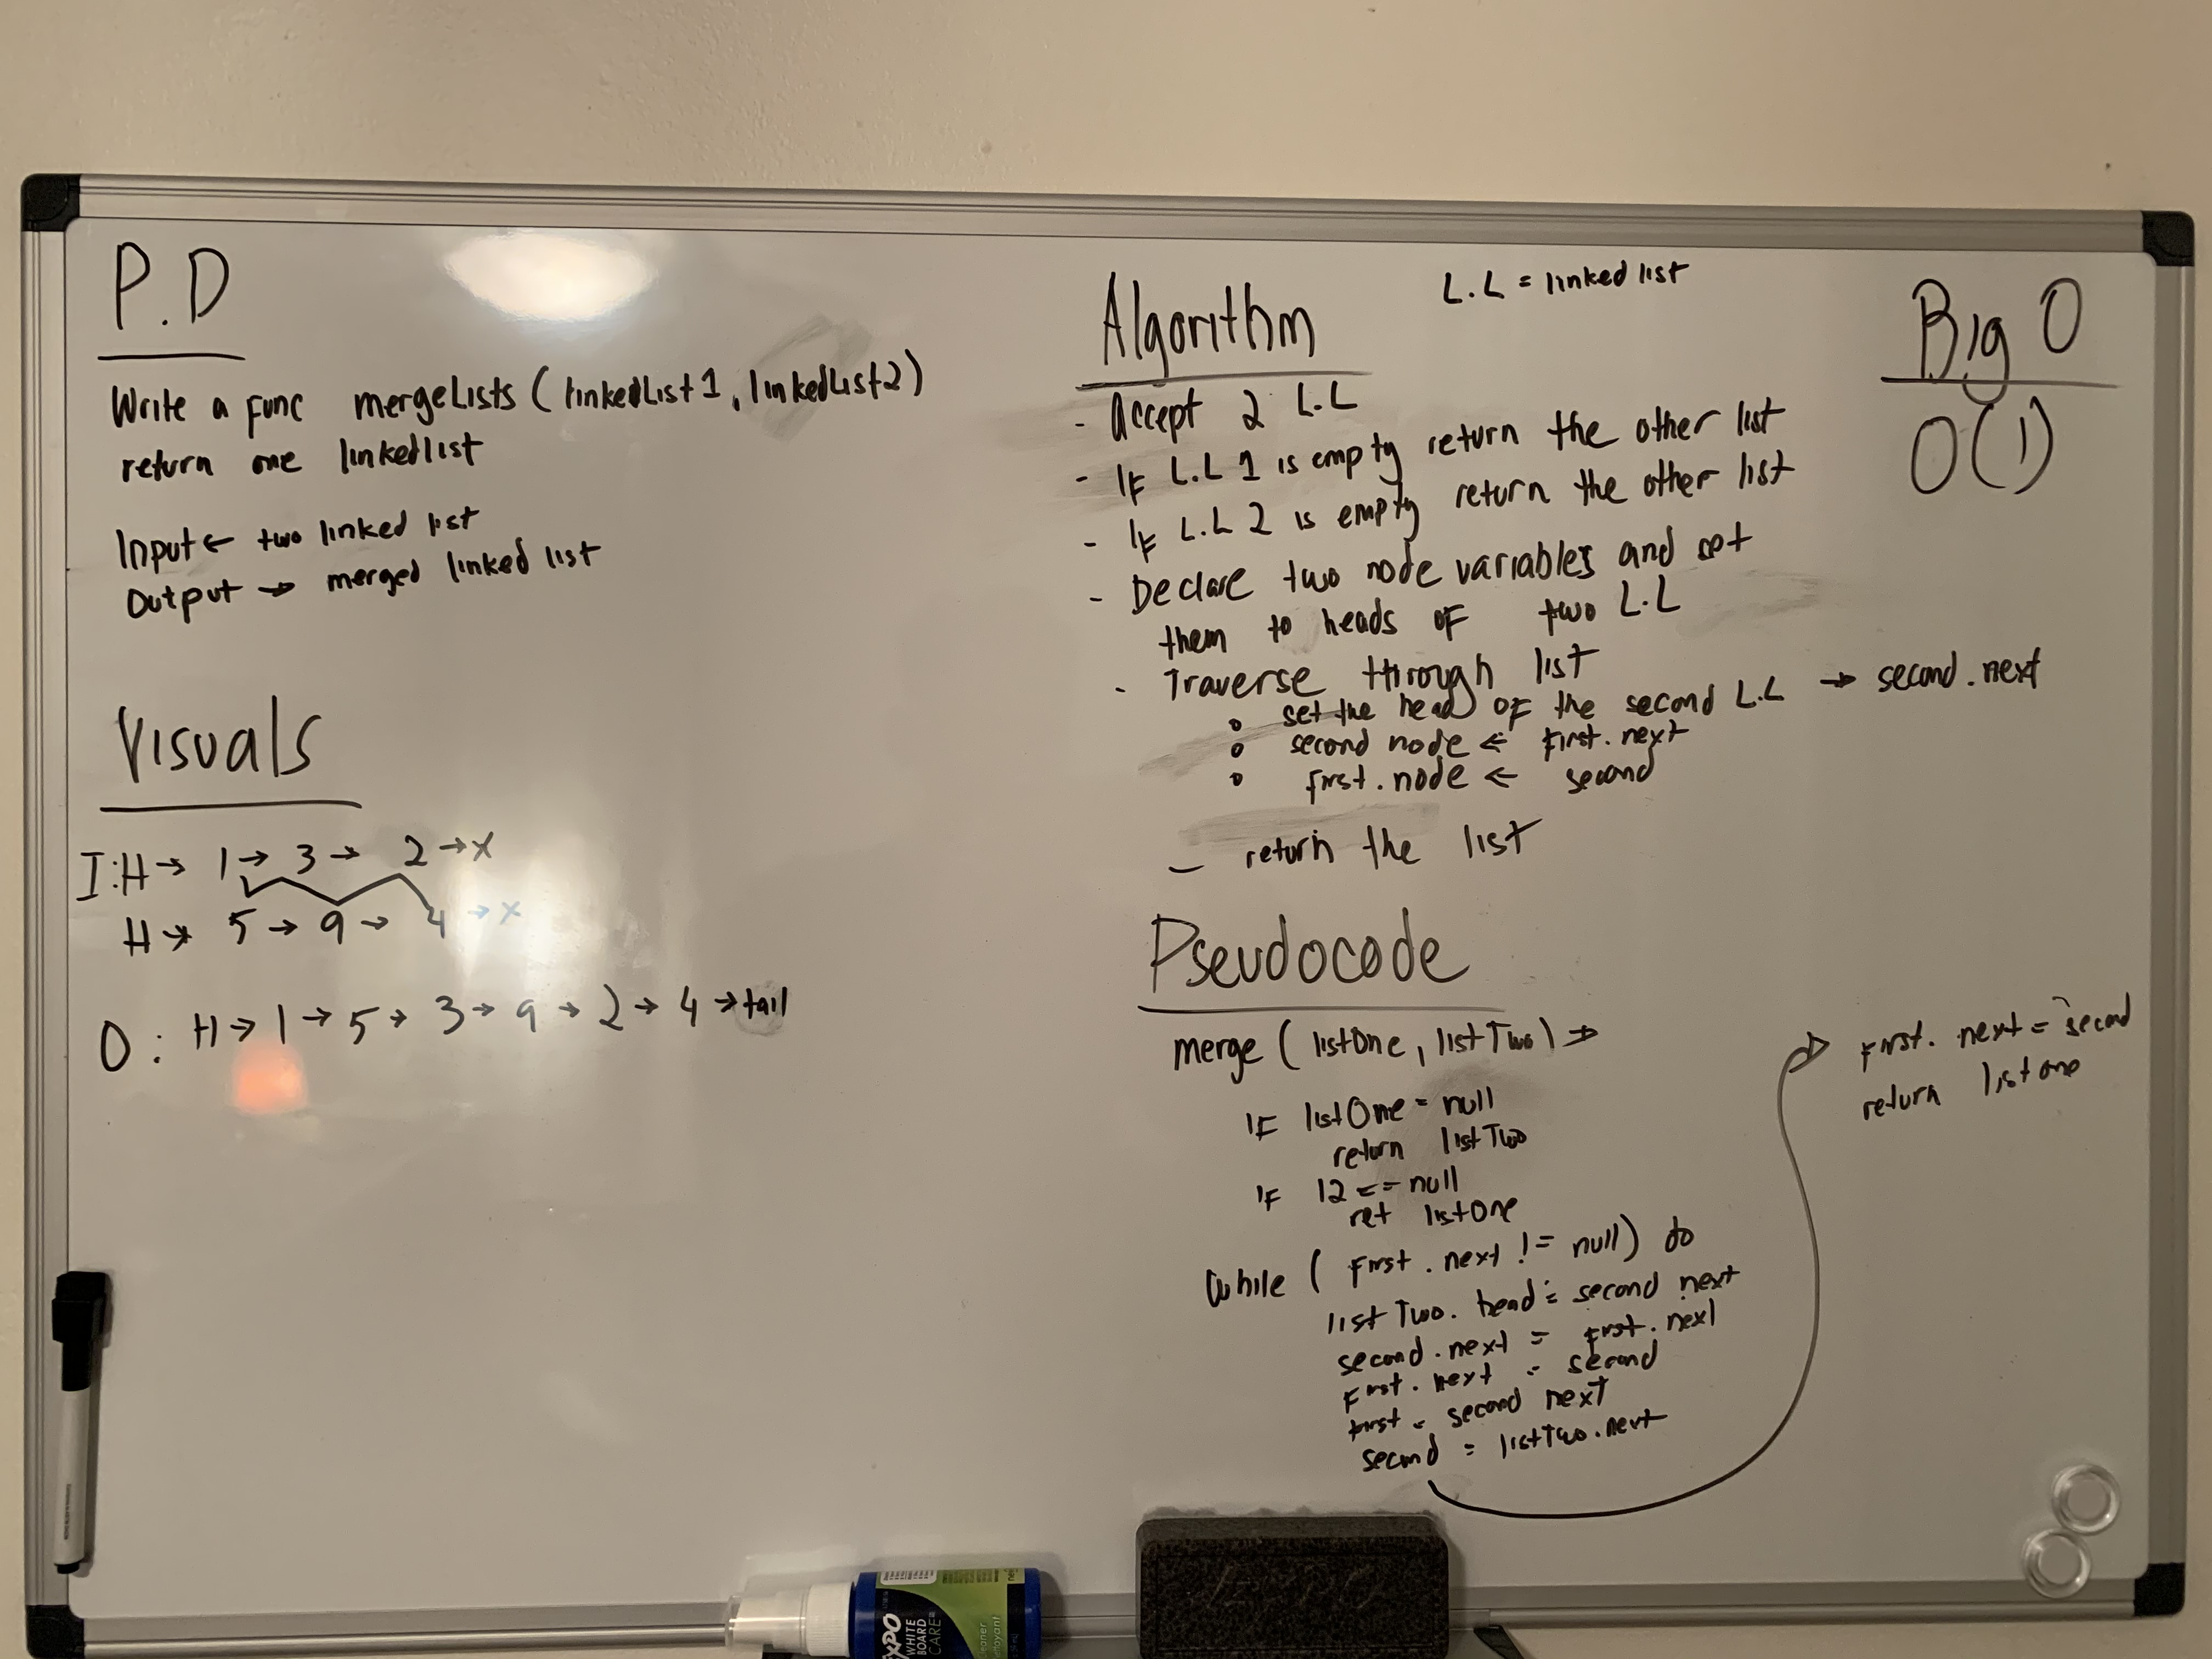 P.D
Write a func mergeLists (linkedList1, linkedList2)
return one linkedlist
Input ← two linked list
Output → merged linked list
Visuals
I: H → 1 → 3 → 2 → X
H → 5 → 9 → 4 → X
O: H → 1 → 5 → 3 → 9 → 2 → 4 → tail
L.L = linked list
Algorithm
- Accept 2 L.L
- IF L.L 1 is empty return the other list
- IF L.L 2 is empty return the other list
- Declare two node variables and set
them to heads of two L.L
- Traverse through list
° set the head of the second L.L → second.next
° second node ← first.next
° first.node ← second
- return the list
Pseudocode
merge (listOne, listTwo) →
IF listOne = null
return listTwo
IF l2 == null
ret listOne
while (First.next != null) do
listTwo. head = second next
second.next = first.next
First.next = second
first = second next
second = listTwo.next
First.next = second
return listone
Big O
O(1)
EXPO
WHITE
BOARD
CARE